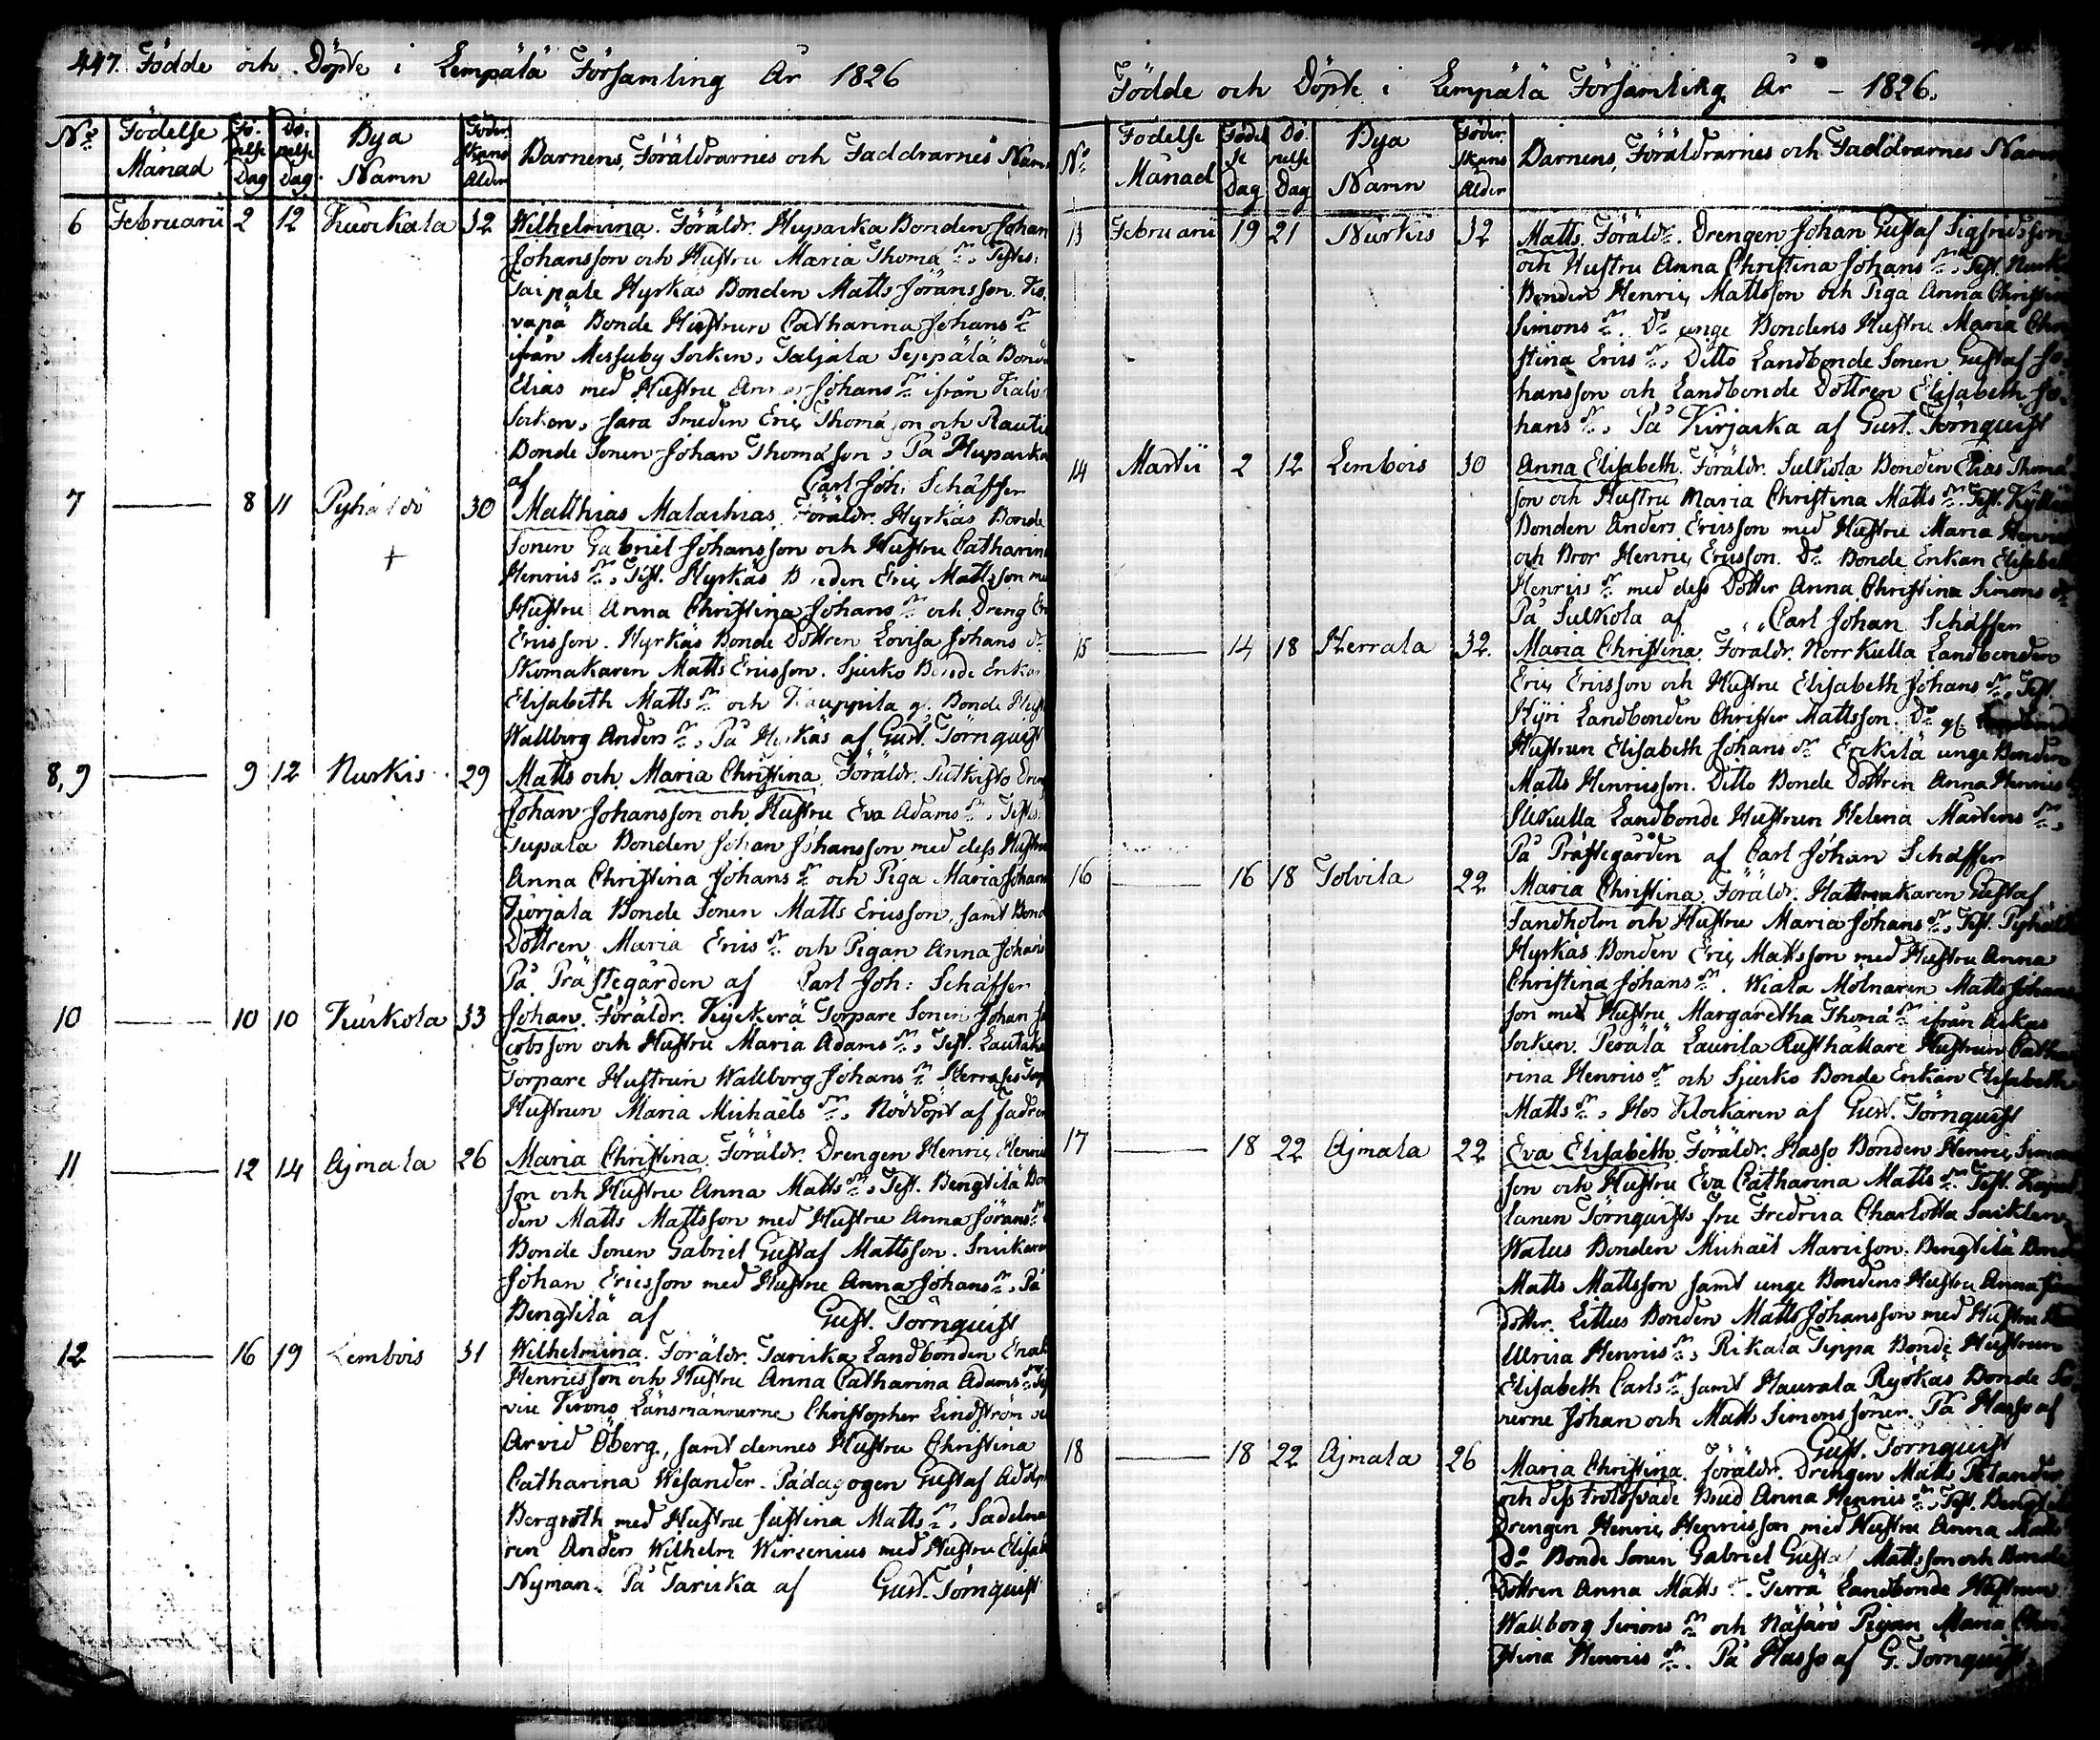 447. Födde och Döpte i Lempälä Församling År 1826
No Födelse Månad Födelse Dag Döpelse Dag Bya Namn Föderskans Ålder Barnens, Föräldrarnes och Faddrarnes Namn
6 Februarii 2 12 Kuckala 32 Wilhelmina. Föräldr. Huparka Bonden Johan
Johansson och Hustru Maria Thomæ dr, Testes:
Taipale Hyrkäs Bonden Matts Jöransson. Ko-
vapä Bonde Hustrun Catharina Johans dr
ifrån Messuby Socken, Taljala Seppälä Bond
Elias med Hustru Anna Johans dr ifrån
Socken, Sara Smeden Eric Thomasson och Rauti
Bonde Sonen Johan Thomasson, På Huparka
af Carl Joh: Schäffer
7 — 8 11 30 Matthias Malachias. Föräldr. Hyrkäs Bonde
+
Sonen Gabriel Johansson och Hustru Catharin
Henrics dr, Test. Hyrkäs Bonden Eric Mattsson me
Hustru Anna Christina Johans dr och Dreng Er
Ericsson. Hyrkäs Bonde Dottren Lovisa Johans dr
Skomakaren Matts Ericsson. Sjurko Bonde Enkan
Elisabeth Matts dr och Kauppila g. Bonde Hust
Wallborg Anders dr, På Hyrkäs af Gust. Törnquist
8,9 — 9 12 Nurkis 29 Matts och Maria Christina. Föräldr. Putkisto
Johan Johansson och Hustru Eva Adams dr, Testes
Tupala Bonden Johan Johansson med dess Hustru
Anna Christina Johans dr och Piga Maria Johan
Kurjala Bonde Sonen Matts Ericsson, samt Bond
Dottren Maria Erics dr och Pigan Anna Johans
På Prästegården af Carl Joh: Schäffer
10 — 10 10 Kuckola 33 Johan. Föräldr. Torpare Sonen Johan Ja
cobsson och Hustru Maria Adams dr, Test.
Torpare Hustrun Wallborg Johans dr Torp
Hustrun Maria Michaels dr, Nöddöpt af Fadren
11 — 12 14 Ajmala 26 Maria Christina. Föräldr. Drengen Henric Henrics
son och Hustru Anna Matts dr, Test. Bengtilä Bon
den Matts Mattsson med Hustru Anna Jörans dr
Bonde Sonen Gabriel Gustaf Mattsson. Snickaren
Johan Ericsson med Hustru Anna Johans dr, På
Bengtilä af Gust. Törnquist
12 — 16 19 Lembois 31 Wilhelmina. Föräldr. Taricka Landbonden
Henricsson och Hustru Anna Catharina Adams dr
vice Krono Länsmännerne Christopher Lindström o
Arvid Öberg, samt dennes Hustru Christina
Catharina Wesander. Pädagogen Gustaf Adolph
Bergroth med Hustru Justina Matts dr, Sadelma
ren Anders Wilhelm Wirzenius med Hustru Elisab
Nyman. På Taricka af Gust. Törnquist
Födde och Döpte i Lempälä Församling År – 1826.
No Födelse Månad Födelse Dag Döpelse Dag Bya Namn Föderskans Ålder Barnens, Föräldrarnes och Faddrarnes Namn
13 Februarii 19 21 Nurkis 32 Matts. Föräldr. Drengen Johan Gustaf Sigfridsson
och Hustru Anna Christina Johans dr, Test. Nurk
Bonden Henric Mattsson och Piga Anna Christin
Simons dr. Do unge Bondens Hustru Maria Chri
stina Erics dr, Ditto Landbonde Sonen Gustaf Jo-
hansson och Landbonde Dottren Elisabeth Jo-
hans dr, På Kurjarka af Gust. Törnquist
14 Martii 2 12 Lembois 30 Anna Elisabeth. Föräldr. Sulkola Bonden Elias Thoma
son och Hustru Maria Christina Matts dr Test.
Bonden Anders Ericsson med Hustru Maria Henrics
och Bror Henric Ericsson. Do Bonde Enkan Elisabeth
Henrics dr med dess Dotter Anna Christina Simons dr
På Sulkola af Carl Johan Schäffer
15 — 14 18 Herrala 32. Maria Christina. Föräldr. Norrkulla Landbonden
Eric Ericsson och Hustru Elisabeth Johans dr, Test.
Hyri Landbonden Christer Mattsson. Do gl.
Hustrun Elisabeth Johans dr Erckilä unge Bonden
Matts Henricsson. Ditto Bonde Dottren Anna Henrics
Landbonde Hustrun Helena Mårtens dr,
På Prästegården af Carl Johan Schäffer
16 — 16 18 Tolvila 22 Maria Christina. Föräldr. Hattmakaren Gustaf
Sandholm och Hustru Maria Johans dr, Test.
Hyrkäs Bonden Eric Mattsson med Hustru Anna
Christina Johans dr. Wiala Mölnaren Matts Johans
son med Hustru Margaretha Thomæ dr ifrån Ackas
Socken. Perälä Laurila Rusthållare Hustrun Catha
rina Henrics dr och Sjurko Bonde Enkan Elisabeth
Matts dr, Hos Klockaren af Gust. Törnquist
17 — 18 22 Ajmala 22 Eva Elisabeth. Föräldr. Hasso Bonden Henric Simons
son och Hustru Eva Catharina Matts dr Test. Kapel
lanen Törnquists fru Fredrica Charlotta
Walus Bonden Michaël Maricson. Bengtilä Bonde
Matts Mattsson samt unge Bondens Hustru Anna
dotter. Littus Bonden Matts Johansson med Hustru
Ulrica Henrics dr, Rikala Seppa Bonde Hustrun
Elisabeth Carls dr samt Haurala Ryökäs Bonde Sö
nerne Johan och Matts Simons söner. På Hasso af
Gust. Törnquist
18 — 18 22 Ajmala 26 Maria Christina. Föräldr. Drengen Matts
och dess trolofvade Brud Anna Henrics dr, Test. Bengtilä
Drengen Henric Henricsson med Hustru Anna Matts
Do Bonde Sonen Gabriel Gustaf Mattsson och Bonde
Dottren Anna Matts dr. Terrä Landbonde Hustrun
Wallborg Simons dr och Näsärö Pigan Maria Chri
stina Henrics dr. På Hasso af G. Törnquist